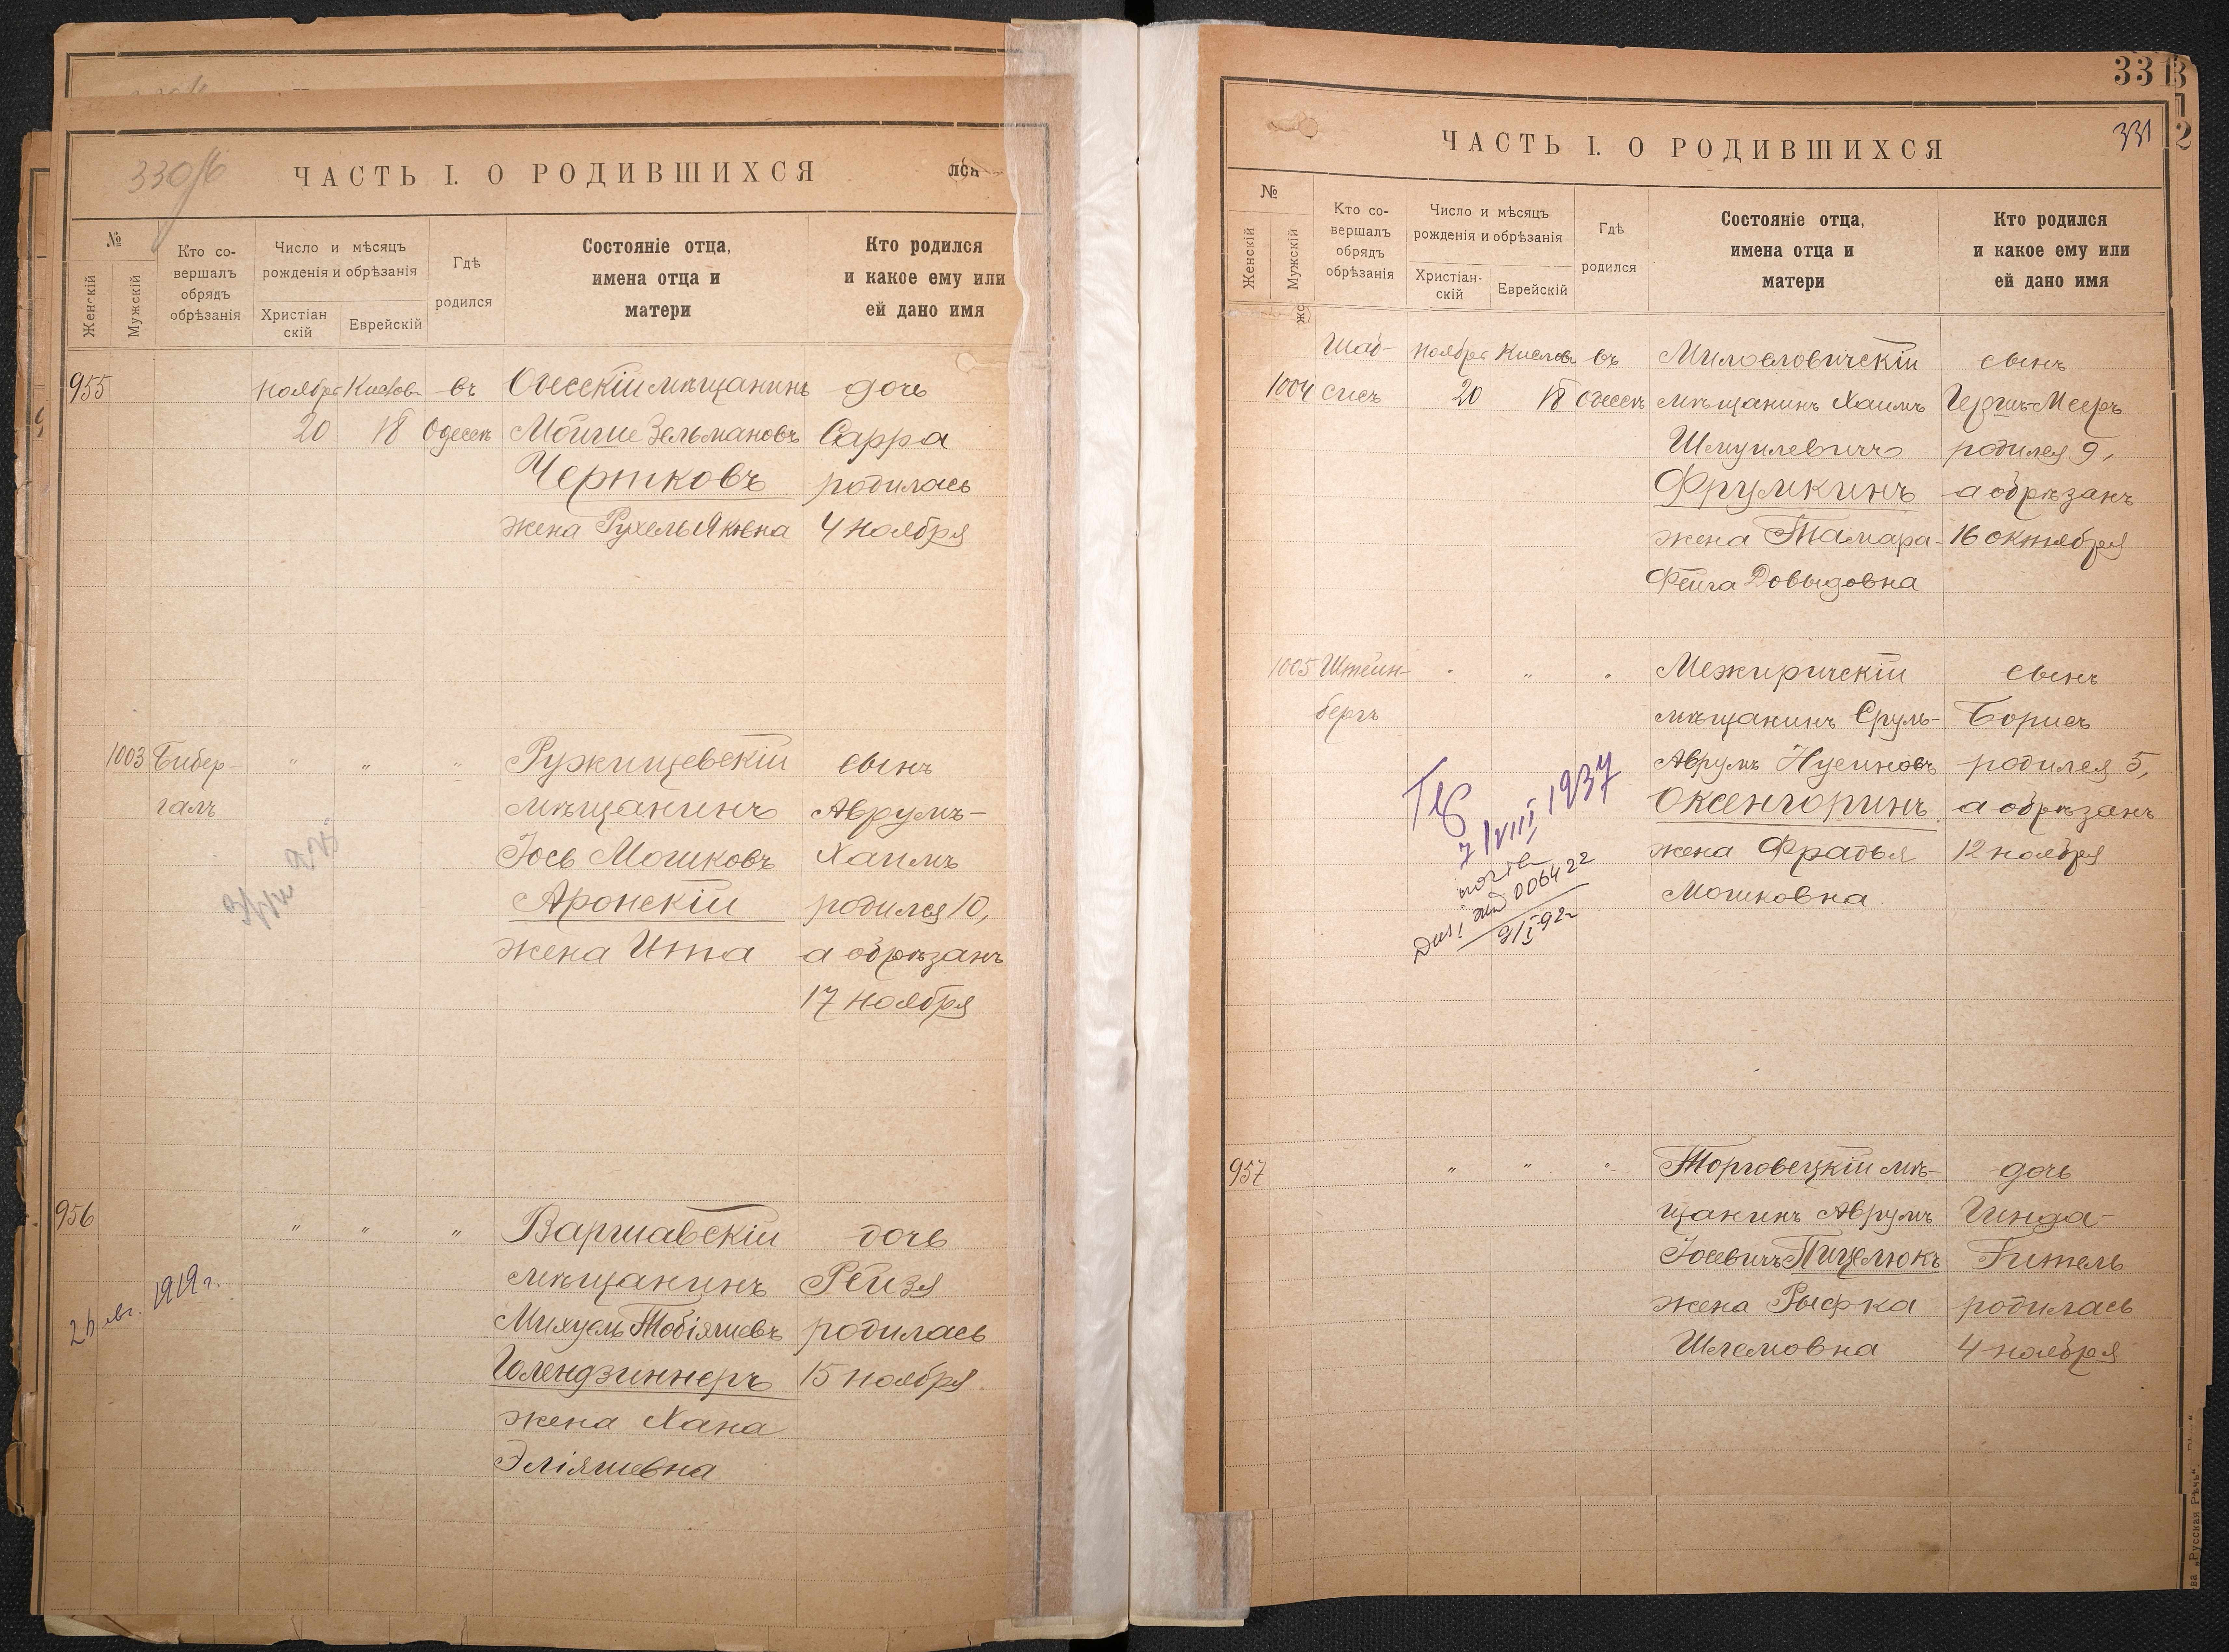 330/б
ЧАСТЬ I. О РОДИВШИХСЯ
лся
№
Женскій
Мужскій
Кто со-
вершалъ
обрядъ
обрѣзанія
Число и мѣсяцъ
рожденія и обрѣзанія
Христіан
скій
Еврейскій
Гдѣ
родился
Состояніе отца,
имена отца и
матери
Кто родился
и какое ему или
ей дано имя
955 ноября Кислев въ Одесскій мѣщанинъ дочь
20 18 Одессѣ Мойше Зельмановъ Сарра
Чертковъ родилась
жена Рухель Яковна 4 ноября
1003 Бибер- " " " Ружищевскій сынъ
галъ мѣщанинъ Аврумъ-
Іось Мошковъ Хаимъ
Аронскій родился 10,
жена Ита а обрѣзанъ
17 ноября
956 " " " Варшавскій дочь
мѣщанинъ Рейзя
Михуель Тобіяшевъ родилась
Голендзиннеръ 15 ноября
жена Хана
Эліяшевна
1919 г.
33
331
ЧАСТЬ I. О РОДИВШИХСЯ
№
Женскій
Мужскій
Кто со-
вершалъ
обрядъ
обрѣзанія
Число и мѣсяцъ
рожденія и обрѣзанія
Христіан-
скій
Еврейскій
Гдѣ
родился
Состояніе отца,
имена отца и
матери
Кто родился
и какое ему или
ей дано имя
Шаб- ноября Кислев въ Милославичскій сынъ
1004 сисъ 20 18 Одессѣ мѣщанинъ Хаимъ Гершъ-Мееръ
Шмуилевичъ родился 9,
Фрумкинъ а обрѣзанъ
жена Тамара- 16 октября
Фейга Довыдовна
1005 Штейн- " " " Межиричскій сынъ
бергъ мѣщанинъ Сруль- Борисъ
Аврумъ Нусиновъ родился 5,
Оксенгоринъ а обрѣзанъ
жена Фрадья 12 ноября
Мошковна
7/VIII 1937
006422
9/I 92г
957 " " " Торговецкій мѣ- дочь
щанинъ Аврумъ Гинда-
Іосевичъ Пицелюкъ Гитель
жена Рыфка родилась
Шлемовна 4 ноября
„Русская Рѣчь“.